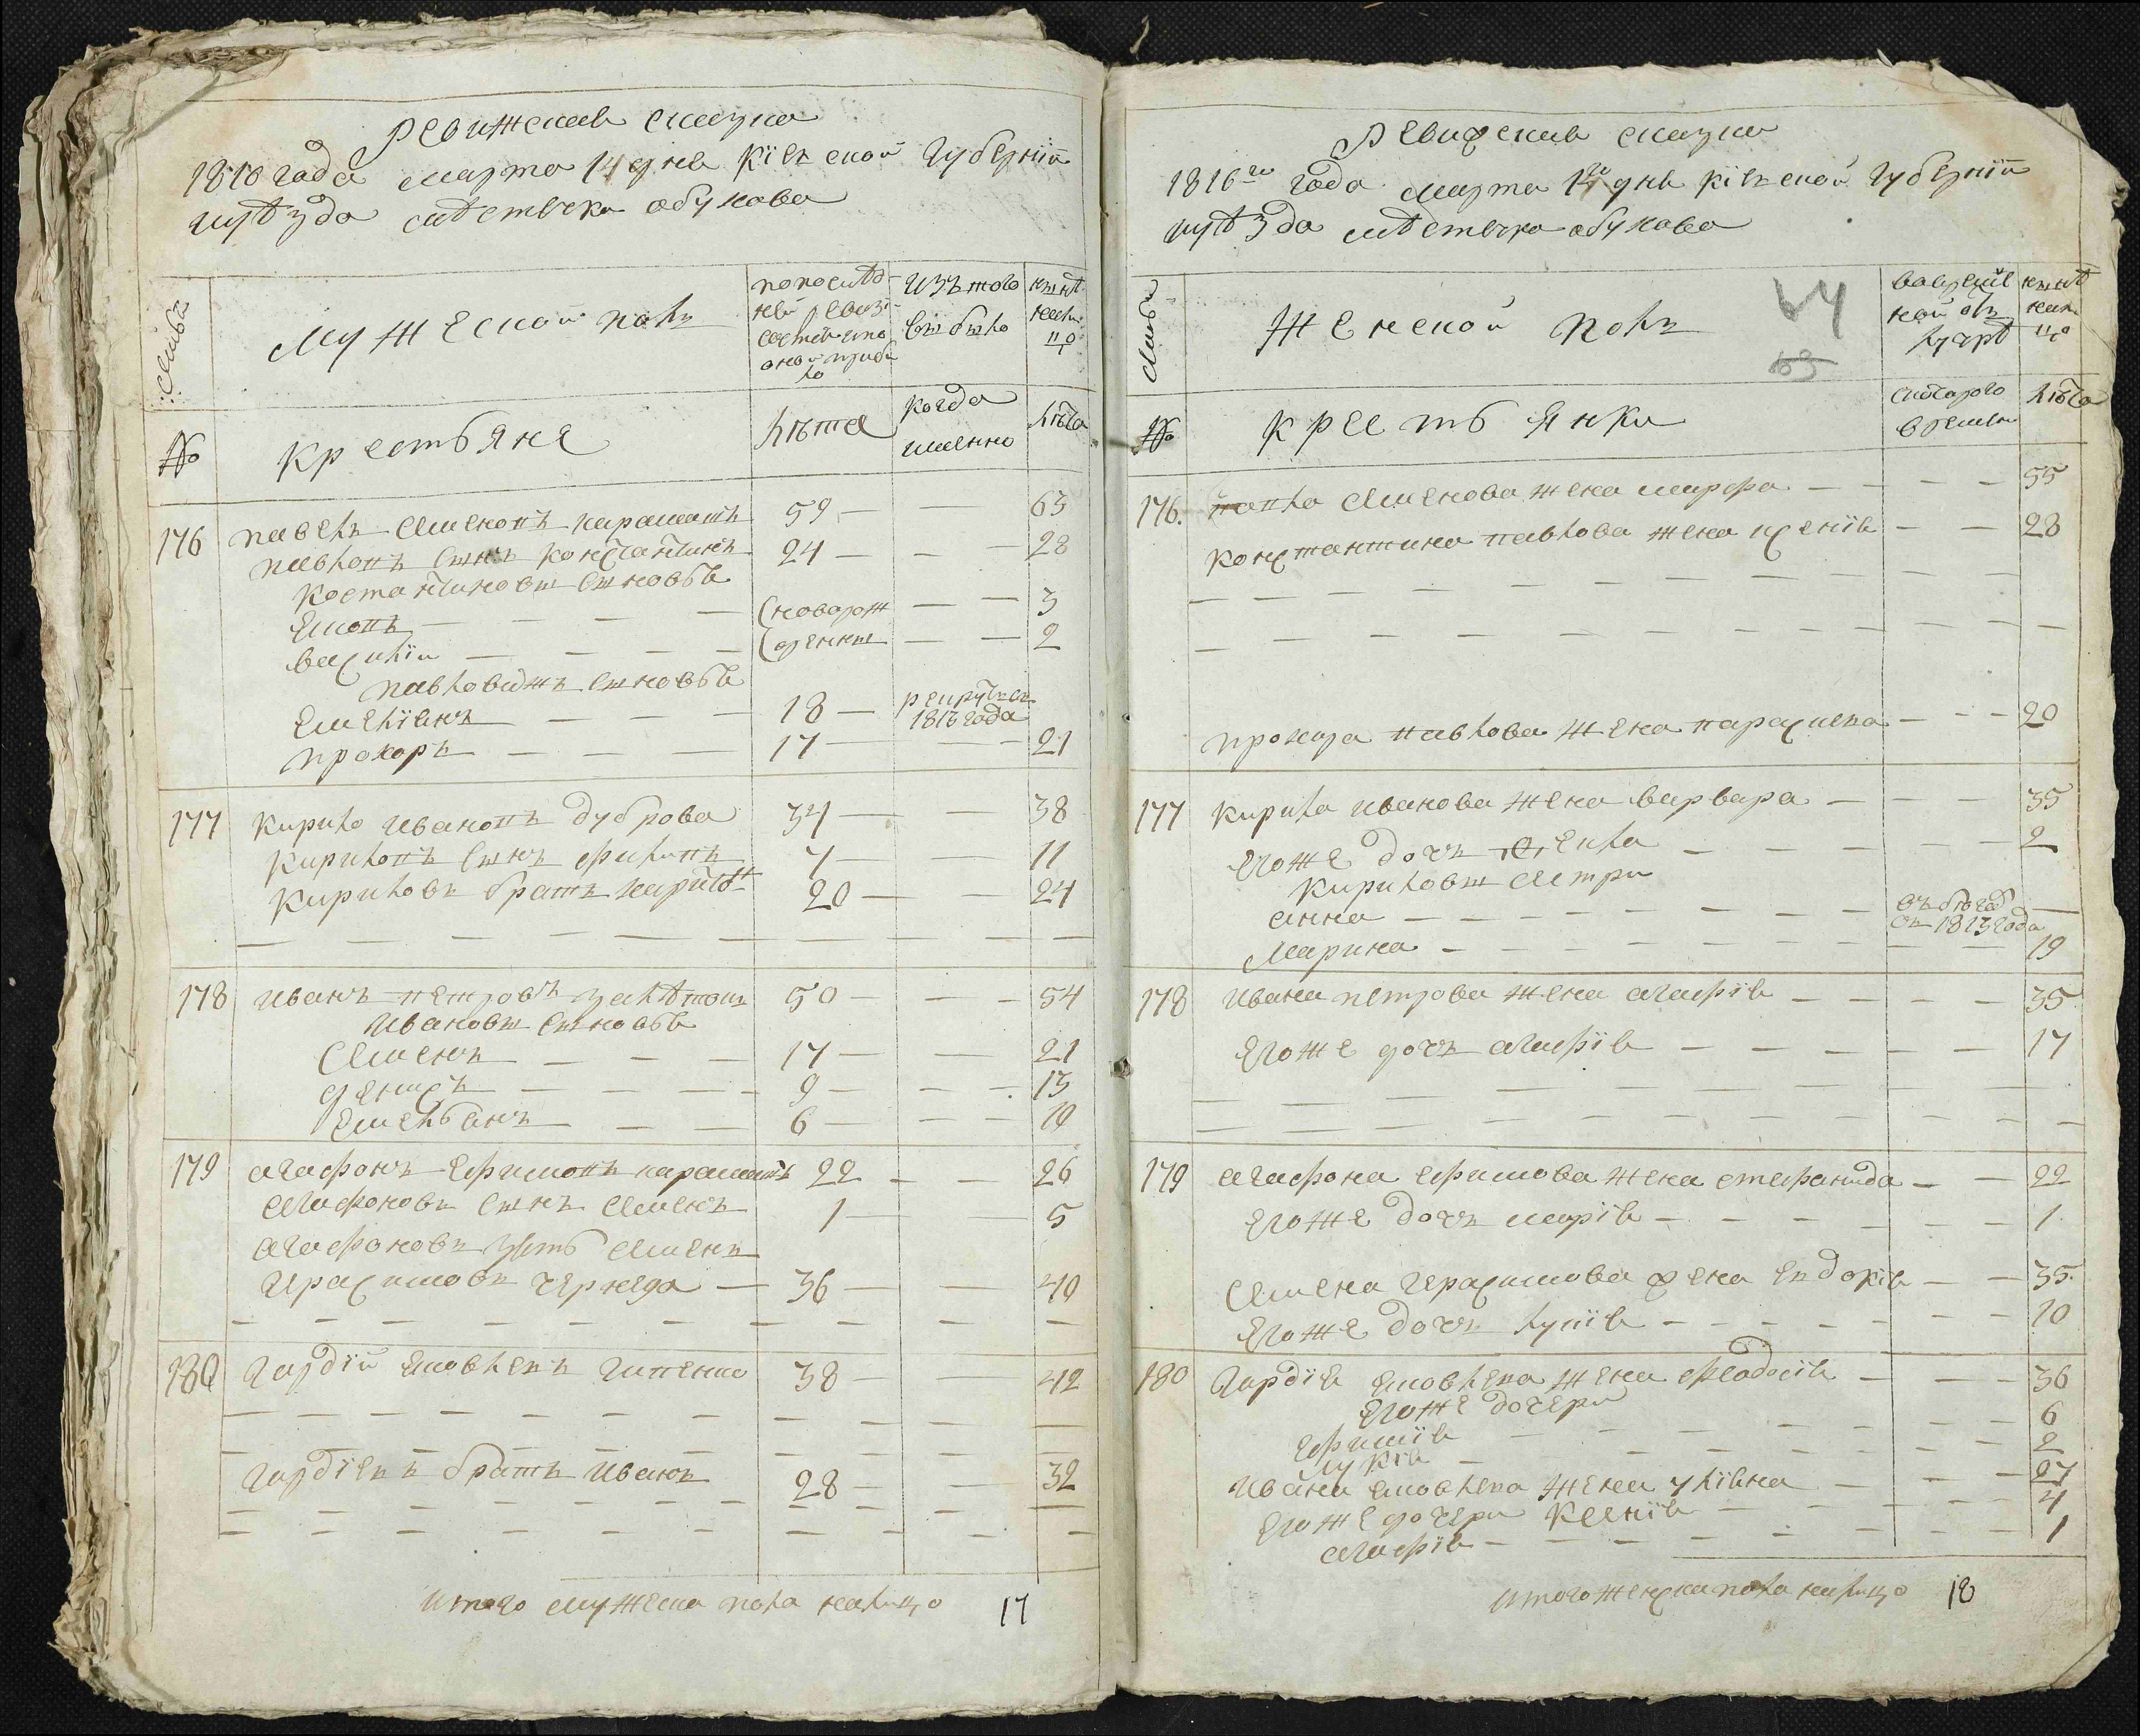 Ревижская сказка
1816 года марта 14 дня Кіевской Губерніи
уѣзда мѣстечка обухова
семьи
мужеской полъ
изъ того
выбыло
ныне
налицо
№
крестьяне
лѣта
когда
именно
лѣта
176 павелъ Семеновъ карамашъ 59 — — 63
павловъ сынъ Константинъ 24 — — 28
Костантиновы сыновья
— (новарож — — 3
василій — (денны — — 2
павловыжъ сыновья
Емеліянъ — 18 — рекрутъ въ
1813 года
прохоръ — 17 — — 21
177 кирило ивановъ дуброва 34 — — 38
кириловъ сынъ филипъ 7 — — 11
кириловъ братъ харитонъ 20 — — 24
178 иванъ петровъ 50 — — 54
ивановы сыновья
Семенъ — 17 — — 21
денисъ — 9 — — 13
Емельянъ — 6 — — 10
179 агафонъ Ефимовъ карамашъ 22 — — 26
агафоновъ сынъ Семенъ 1 — — 5
агафоновъ зять Семенъ
Герасимовъ — 36 — — 40
180 гордій яковлевъ 38 — — 42
гордіевъ братъ иванъ 28 — — 32
итого мужеска пола налицо 17
Ревижская сказка
1816го года марта 14го дня Кіевской Губерніи
уѣзда мѣстечка обухова
64
63
семьи
Женской полъ
ныне
налицо
№
крестьянки
лѣта
176. павла Семенова жена марфа — — 55
константина павлова жена ксенія — — 28
прохора павлова жена параскева — — 20
177 кирила иванова жена варвара — — 35
Егоже дочь — 2
Кириловы сестри
анна — въ бегах
съ 1813 года
Марина — 19
178 ивана петрова жена агафія — — 35
Егоже дочь агафія — — 17
179 агафона Ефимова жена стефанида — — 22
Егоже дочь марія — — 1
Семена Герасимова жена Евдокія — — 35
Егоже дочь — — 10
180 гордія яковлева жена феодосія — — 36
Егоже дочери
Ефимія — 6
— 2
ивана яковлева жена уліяна — — 27
Егоже дочери Ксенія — 4
агафія — — 1
итого женска пола налицо 18